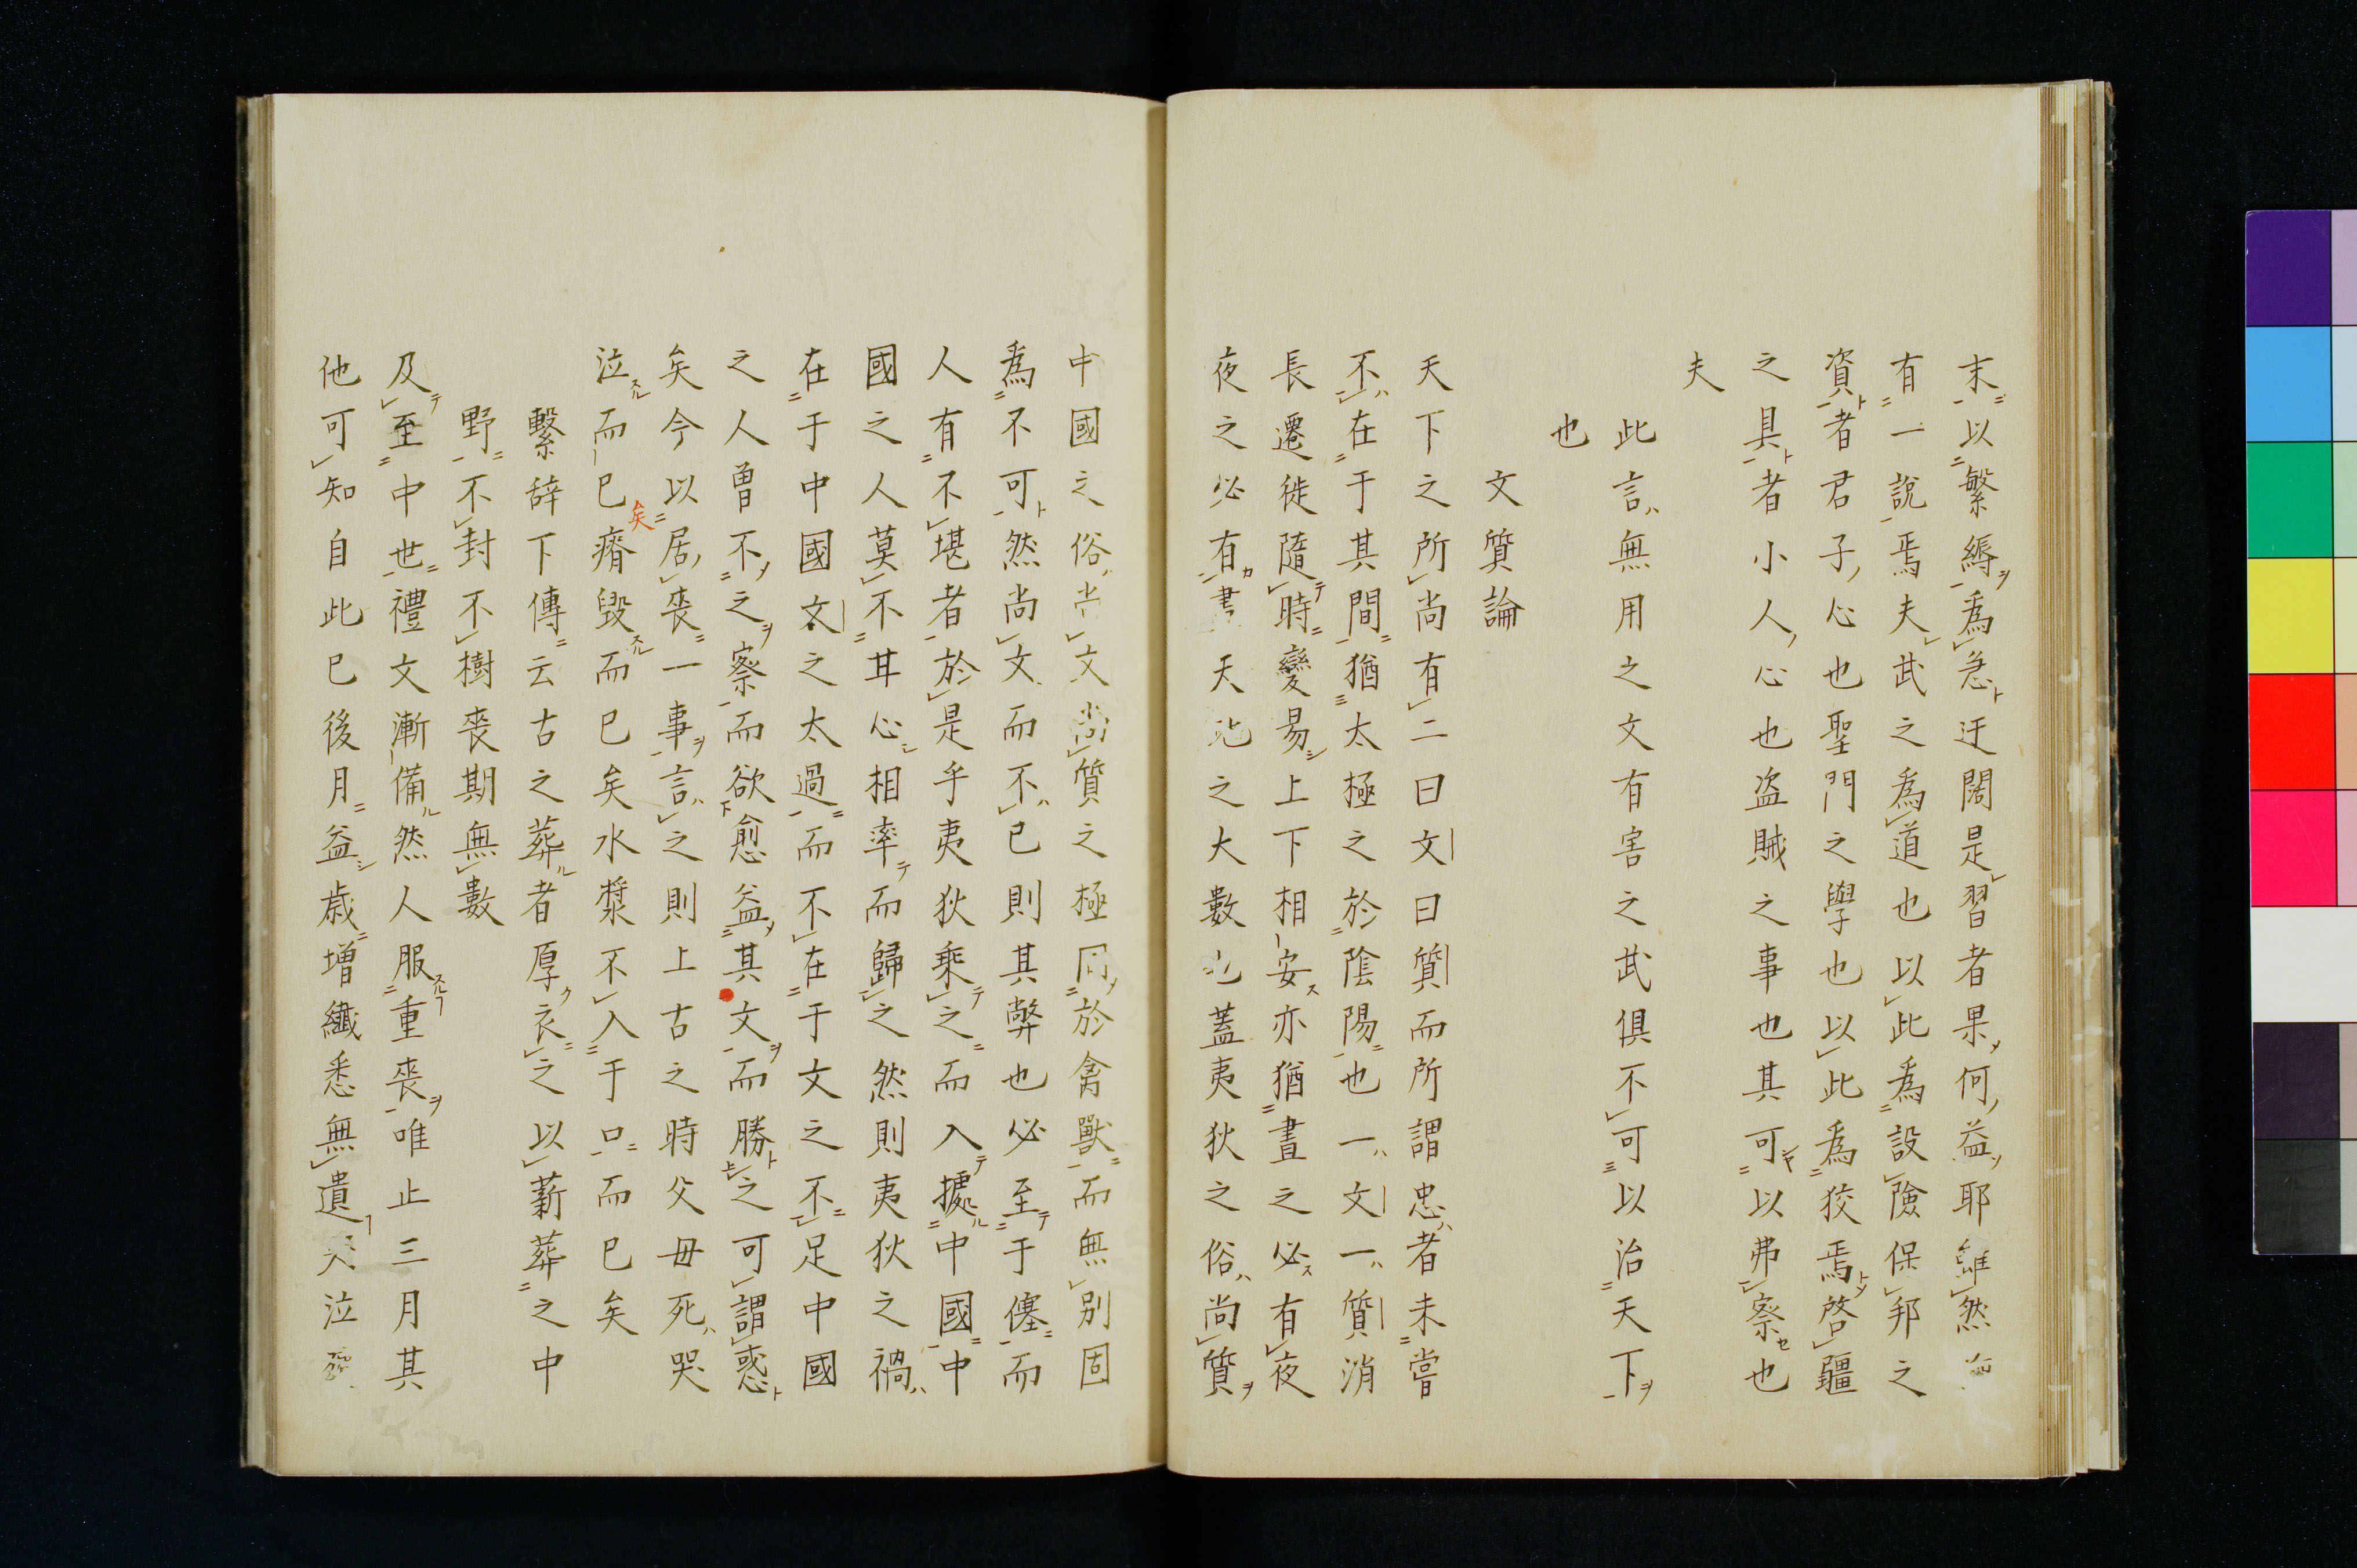 末以繁縟為急迂闊是習者果何益耶雖然
有一說焉夫武之為道也以此為設險保邦之
資者君子心也聖門之學也以此為狡焉啓疆
之具者小人心也盗賊之事也其可以弗察也
夫
此言無用之文有害之武俱不可以治天下
也
文質論
天下之所尚有二曰文曰質而所謂忠者未嘗
不在于其間猶太極之於陰陽也一文一質消
長遷徙隨時變易上下相安亦猶晝之必有夜
夜之必有晝天地之大數也蓋夷狄之俗尚質
中國之俗尚文尚質之極同於禽獸而無別固
為不可然尚文而不已則其弊也必至于僿而
人有不堪者於是乎夷狄乘之而入據中國中
國之人莫不甘心相率而歸之然則夷狄之禍
在于中國文之太過而不在于文之不足中國
之人曽不之察而欲愈益其文而勝之可謂惑
矣今以居喪一事言之則上古之時父母死哭
泣而已矣瘠毀而已矣水漿不入于口而已矣
繫辞下傳云古之葬者厚衣之以薪葬之中
野不封不樹喪期無數
及至中世禮文漸備然人服重喪唯止三月其
他可知自此已後月益歳増纖悉無遺哭泣